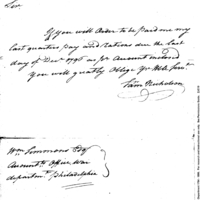 Sir
If you will Order to be paid me my
last quarters pay and Rations due the last
day of Decr 1796 as pr Account inclosed
You will greatly Oblige Yr Hble Servt
Sam Nicholson
Wm Simmons Esqr
Accountt Office War
department Philadelphia